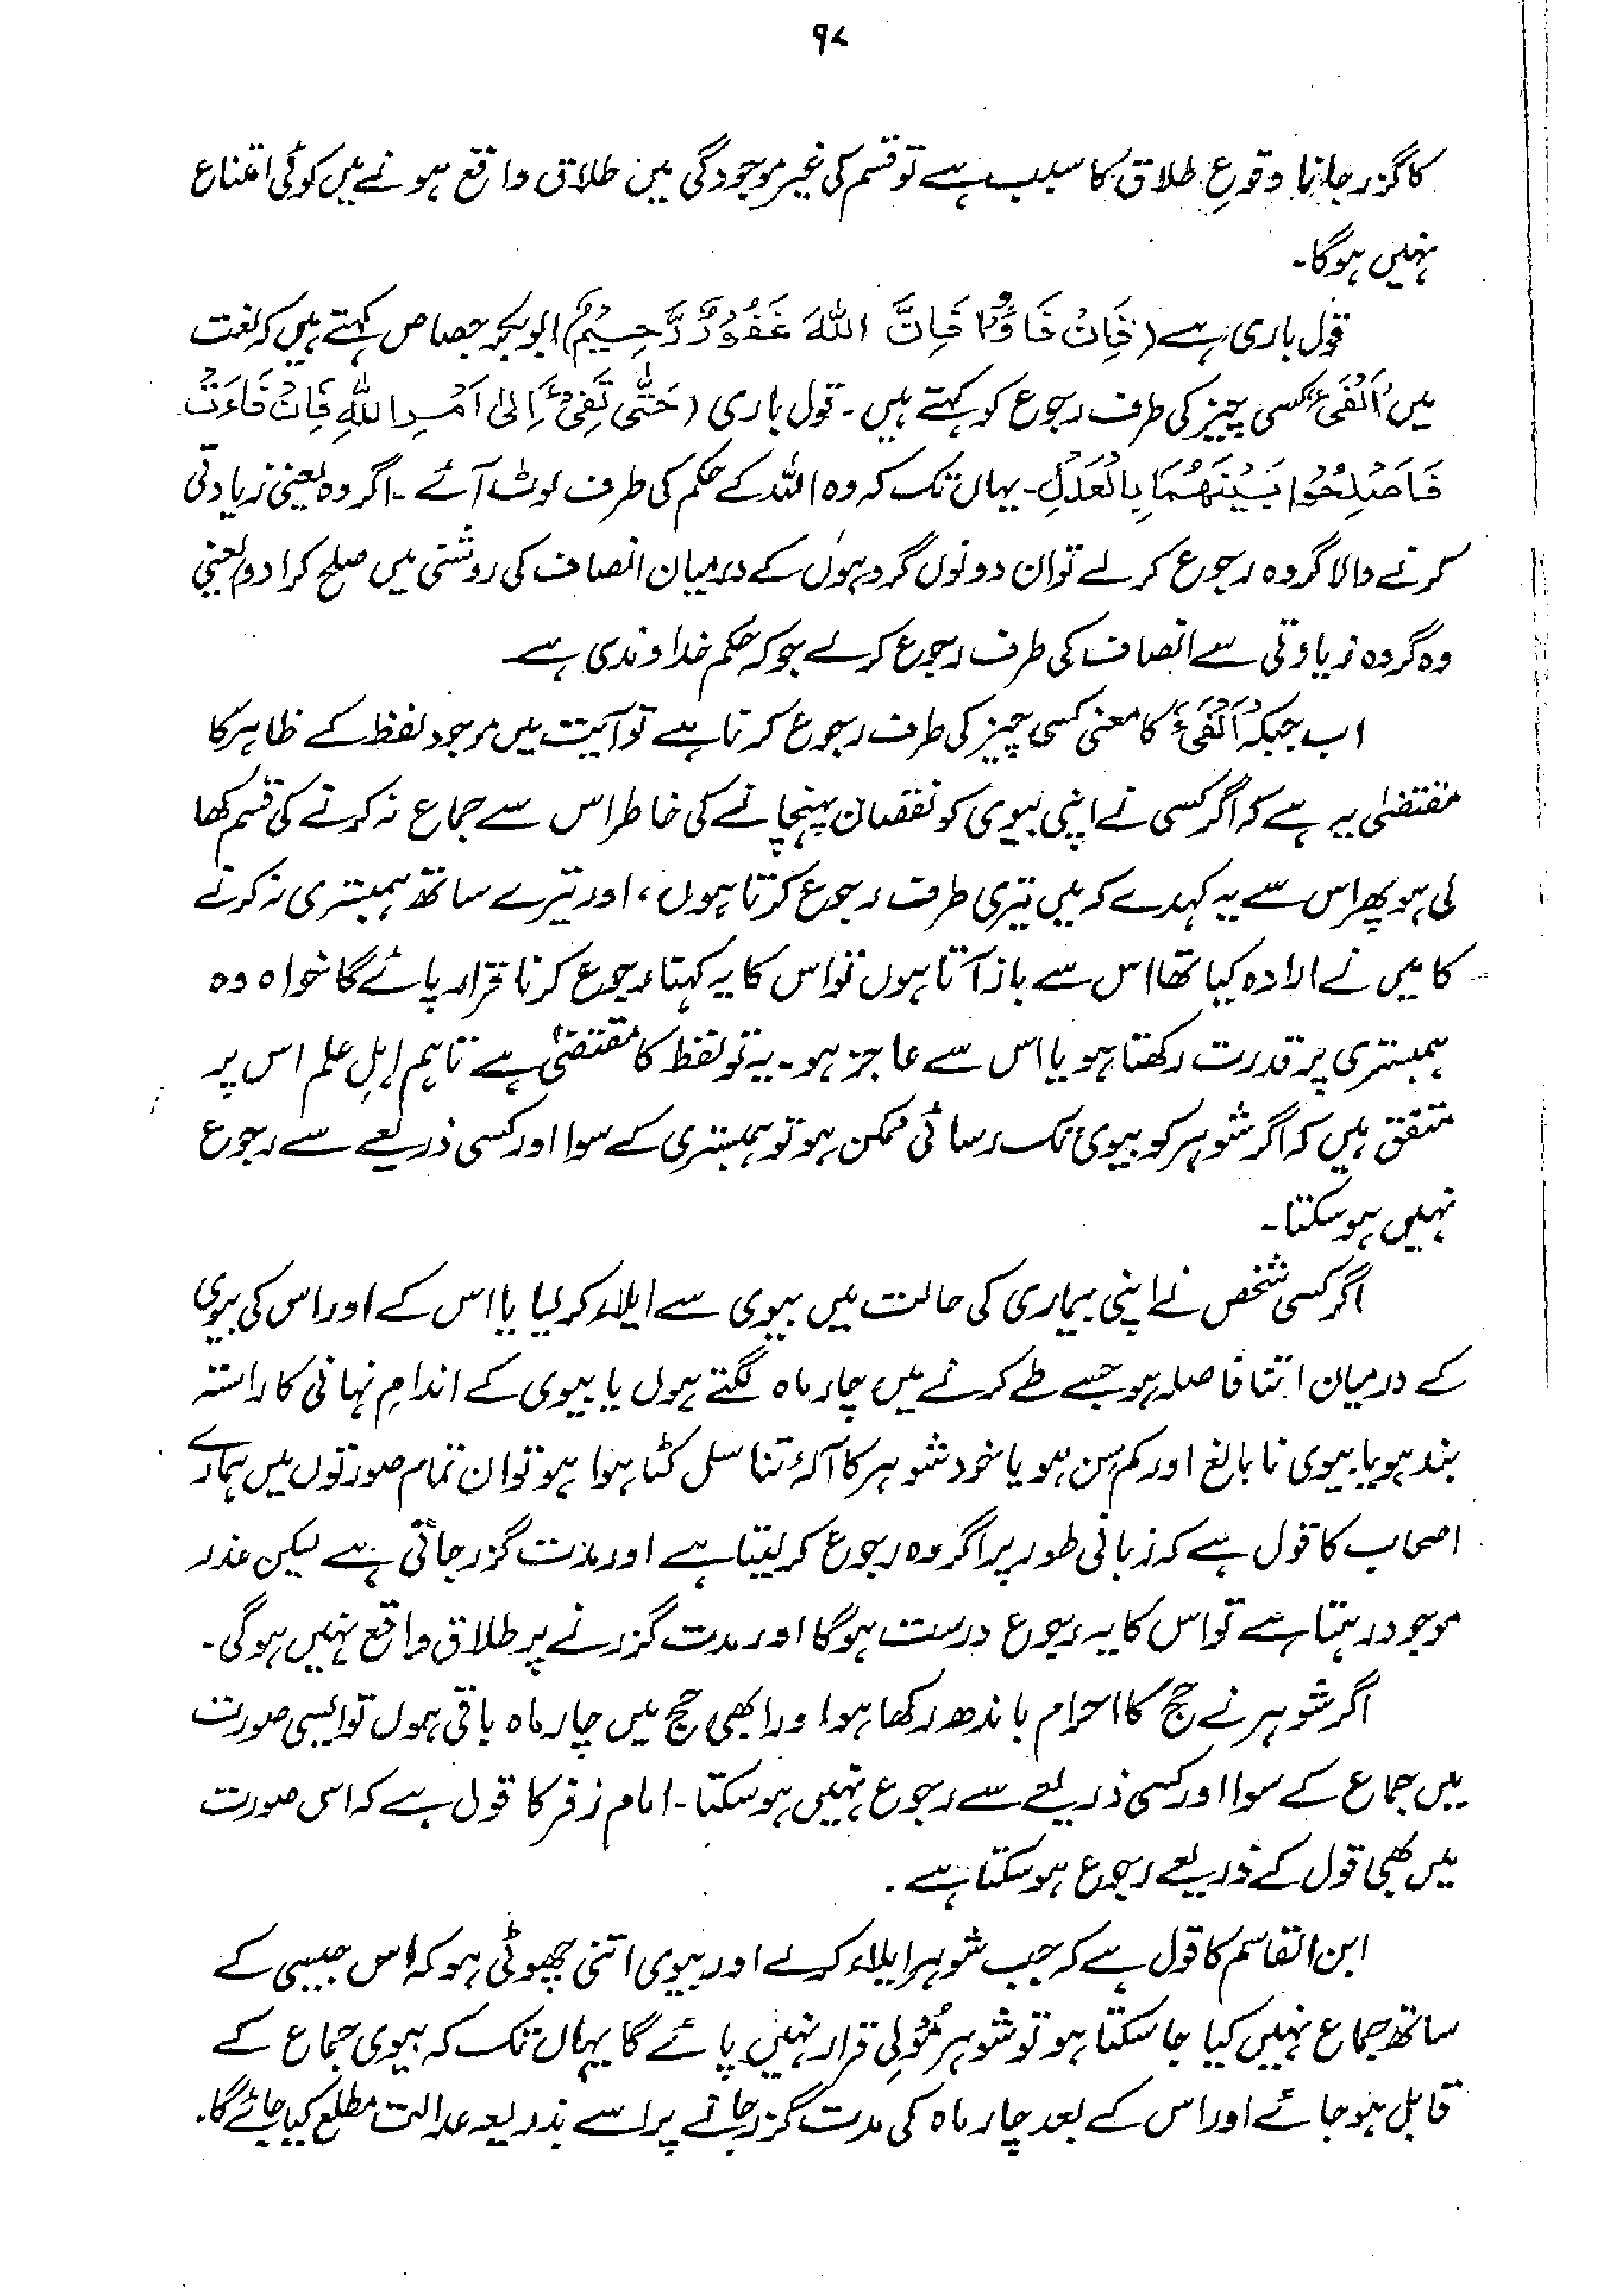 ۹۷
کا گزر جانا وقوعِ طلاق کا سبب ہے تو قسم کی غیر موجودگی میں طلاق واقع ہونے میں کوئی امتناع
نہیں ہوگا۔
قول باری ہے (فَاِنْ فَاؤُا فَاِنَّ اللّٰہَ غَفُوْرٌ رَّحِیْمٌ) ابوبکر جصاص کہتے ہیں کہ لغت
میں اَلْفَیْءُ کسی چیز کی طرف رجوع کو کہتے ہیں۔ قول باری (حَتّٰی تَفِیْءَ اِلٰی اَمْرِ اللّٰہِ فَاِنْ فَاءَتْ
فَاَصْلِحُوْا بَیْنَھُمَا بِالْعَدْلِ۔ یہاں تک کہ وہ اللہ کے حکم کی طرف لوٹ آئے۔ اگر وہ یعنی زیادتی
کرنے والا گروہ رجوع کرلے تو ان دونوں گروہوں کے درمیان انصاف کی روشنی میں صلح کرا دو) یعنی
وہ گروہ زیادتی سے انصاف کی طرف رجوع کرلے جو کہ حکم خداوندی ہے۔
اب جبکہ اَلْفَیْءُ کا معنی کسی چیز کی طرف رجوع کرنا ہے تو آیت میں موجود لفظ کے ظاہر کا
مقتضیٰ یہ ہے کہ اگر کسی نے اپنی بیوی کو نقصان پہنچانے کی خاطر اس سے جماع نہ کرنے کی قسم کھا
لی ہو پھر اس سے یہ کہدے کہ میں تیری طرف رجوع کرتا ہوں، اور تیرے ساتھ ہمبستری نہ کرنے
کا میں نے ارادہ کیا تھا اس سے باز آتا ہوں تو اس کا یہ کہنا رجوع کرنا قرار پائے گا خواہ وہ
ہمبستری پر قدرت رکھتا ہو یا اس سے عاجز ہو۔ یہ تو لفظ کا مقتضیٰ ہے تاہم اہلِ علم اس پر
متفق ہیں کہ اگر شوہر کو بیوی تک رسائی ممکن ہو تو ہمبستری کے سوا اور کسی ذریعے سے رجوع
نہیں ہوسکتا۔
اگر کسی شخص نے اپنی بیماری کی حالت میں بیوی سے ایلاء کر لیا یا اس کے اور اس کی بیوی
کے درمیان اتنا فاصلہ ہو جسے طے کرنے میں چار ماہ لگتے ہوں یا بیوی کے اندامِ نہانی کا راستہ
بند ہو یا بیوی نابالغ اور کم سن ہو یا خود شوہر کا آلۂ تناسل کٹا ہوا ہو تو ان تمام صورتوں میں ہمارے
اصحاب کا قول ہے کہ زبانی طور پر اگر وہ رجوع کرلیتا ہے اور مدت گزر جاتی ہے لیکن عذر
موجود رہتا ہے تو اس کا یہ رجوع درست ہوگا اور مدت گزرنے پر طلاق واقع نہیں ہوگی۔
اگر شوہر نے حج کا احرام باندھ رکھا ہو اور ابھی حج میں چار ماہ باقی ہوں تو ایسی صورت
میں جماع کے سوا اور کسی ذریعے سے رجوع نہیں ہوسکتا۔ امام زفر کا قول ہے کہ اس صورت
میں بھی قول کے ذریعے رجوع ہوسکتا ہے۔
ابن القاسم کا قول ہے کہ جب شوہر ایلاء کرلے اور بیوی اتنی چھوٹی ہو کہ اس جیسی کے
ساتھ جماع نہیں کیا جا سکتا ہو تو شوہر مُوْلِی قرار نہیں پائے گا یہاں تک کہ بیوی جماع کے
قابل ہو جائے اور اس کے بعد چار ماہ کی مدت گزر جانے پر اسے بذریعہ عدالت مطلع کیا جائے گا۔